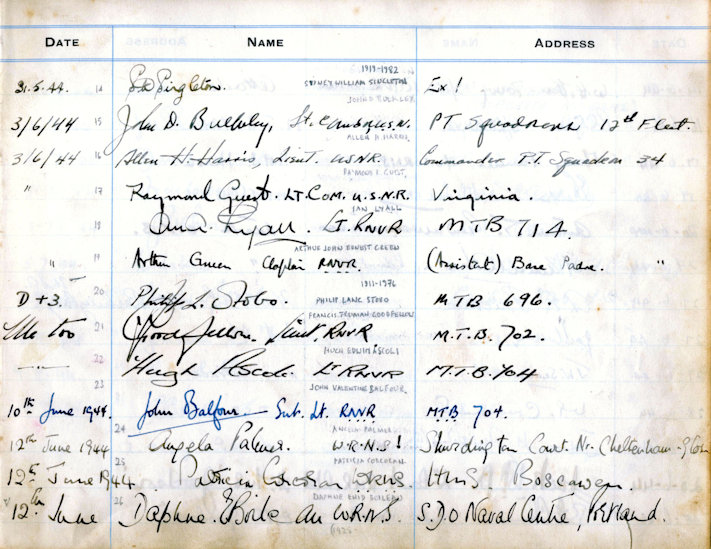 DATE NAME ADDRESS
1919-1982
31.5.44. 14 S W Singleton. SYDNEY WILLIAM SINGLETON Ex!
JOHN D BULKLEY
3/6/44 15 John D. Bulkley, Lt. Comdr U.S.N. PT Squadrons 12th Fleet.
ALLEN H. HARRIS
3/6/44 16 Allen H. Harris, Lieut. USNR. Commander P.T. Squadron 34
RAYMOND R. GUEST
" 17 Raymond Guest. LT. COM. U.S.N.R. Virginia.
IAN LYALL
18 Lyall. LT. RNVR MTB 714.
ARTHUR JOHN ERNEST GREEN
" 19 Arthur Green Chaplain RNVR. (Assistant) Base Padre. "
1911-1976
D+3. 20 Philip L. Stobo. PHILIP LANG STOBO MTB 696.
FRANCIS TRUMAN GOODFELLOW
Me too 21 Goodfellow. Lieut, RNVR M.T.B. 702.
HUGH EDWIN ASCOLI
22 Hugh Ascoli. LT RNVR M.T.B. 704
23 JOHN VALENTINE BALFOUR
10th June 1944. John Balfour Sub. Lt. RNVR MTB 704.
ANGELA PALMER
12th June 1944 24 Angela Palmer. W.R.N.S! Shurdington Court. Nr. Cheltenham - Glos
12th June 1944 25 Patricia Corcoran WRNS. HMS Boscawen.
PATRICIA CORCORAN
DAPHNE ENID
12th June 26 Daphne E W.R.N.S. S.D.O Naval Centre, Portland.